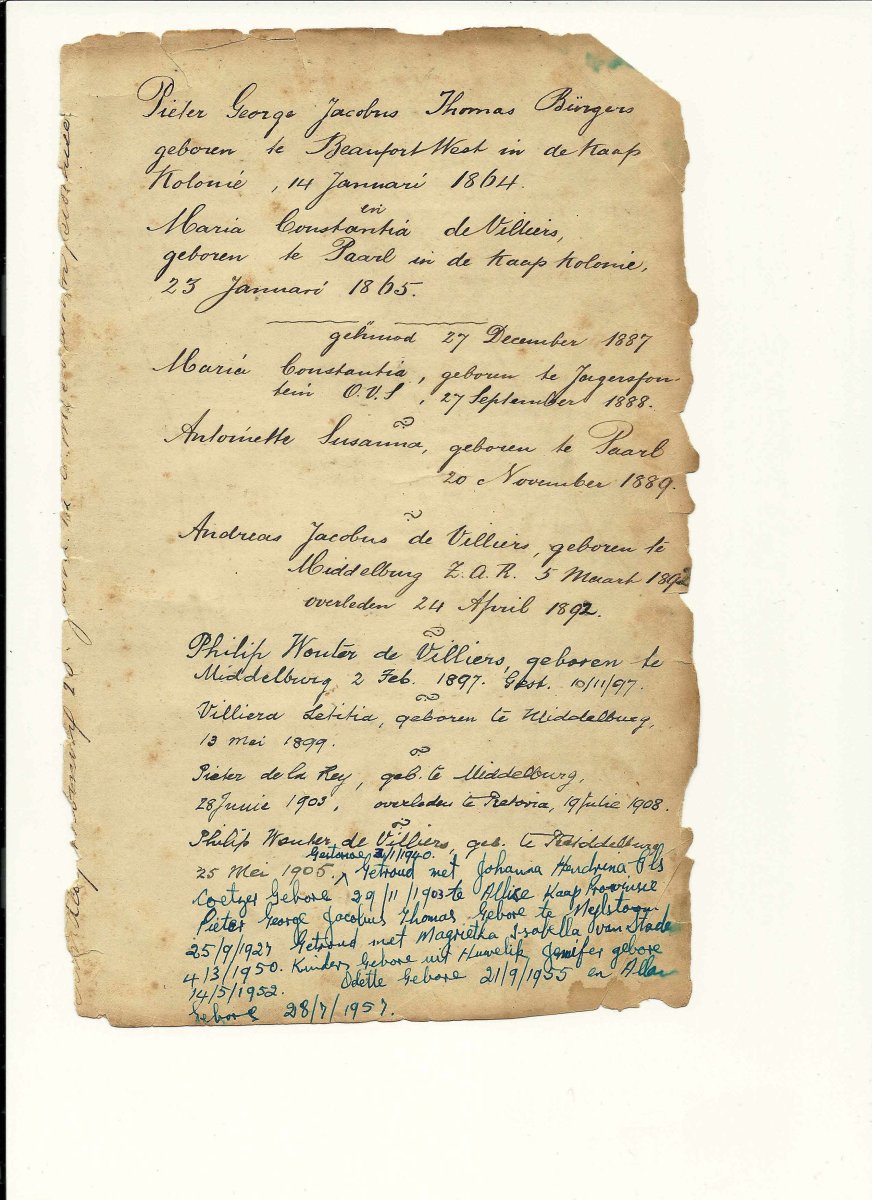 Pieter George Jacobus Thomas Bürgers
geboren te Beaufort West in de Kaap
Kolonie, 14 Januari 1864.
en
Maria Constantia de Villiers,
geboren te Paarl in de Kaap Kolonie,
23 Januari 1865.
gehuwd 27 December 1887
Maria Constantia, geboren te Jagersfon-
tein O.V.S, 27 September 1888.
Antoinette Susanna, geboren te Paarl
20 November 1889.
Andreas Jacobus de Villiers, geboren te
Middelburg Z.A.R. 5 Maart 1892
overleden 24 April 1892.
Philip Wouter de Villiers, geboren te
Middelburg 2 Feb. 1897. Gest. 10/11/97.
Villiera Letitia, geboren te Middelburg,
13 Mei 1899.
Pieter de la Rey, geb. te Middelburg,
28 Junie 1903, overleden te Pretoria, 19 Julie 1908.
Philip Wouter de Villiers, geb. te Middelburg
25 Mei 1905. Getroud met Johanna Hendrina Els
Coetzer Gebore 29/11/1903 te Alice Kaap Provinsie
Pieter George Jacobus Thomas Gebore te Nylstoom
25/9/1927 Getroud met Magrietha Isabella van Stade
4/3/1950. Kinders Gebore uit Huwelik Jenifer gebore
14/5/1952. Odette Gebore 21/9/1955 en Allan
Gebore 28/7/1957.